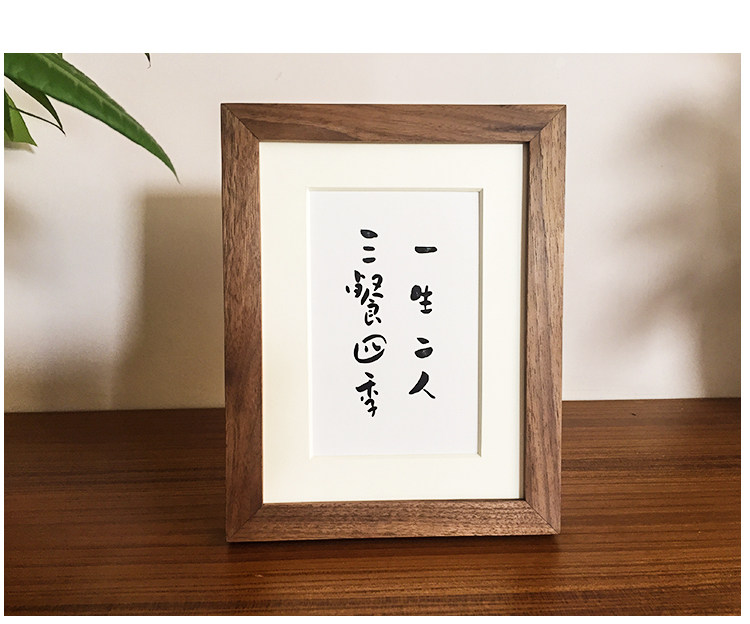 一生二人
三餐四季